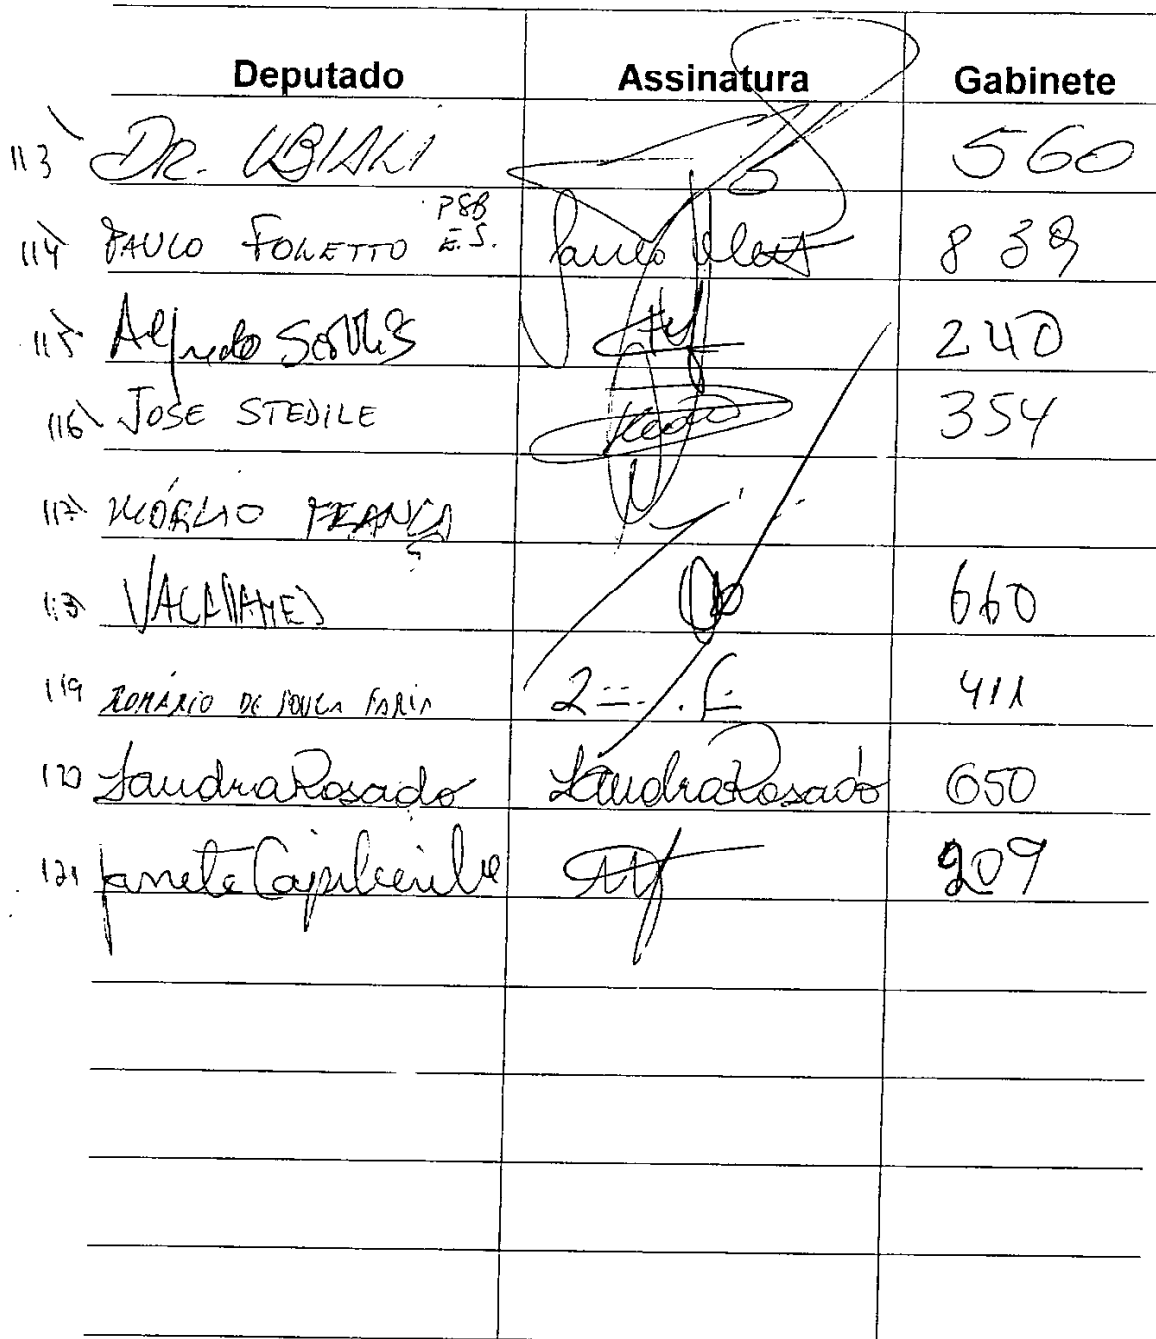 Deputado Assinatura Gabinete
113 DR. UBIALI 560
114 PAULO FOLETTO PSB E.S. Paulo Foletto 839
115 Alfredo Sirkis 240
116 JOSE STEDILE 354
117 MÁRCIO FRANÇA
118 VALADARES 660
119 ROMÁRIO DE SOUZA FARIA 411
120 Sandra Rosado Sandra Rosado 650
121 Janete Capiberibe 209